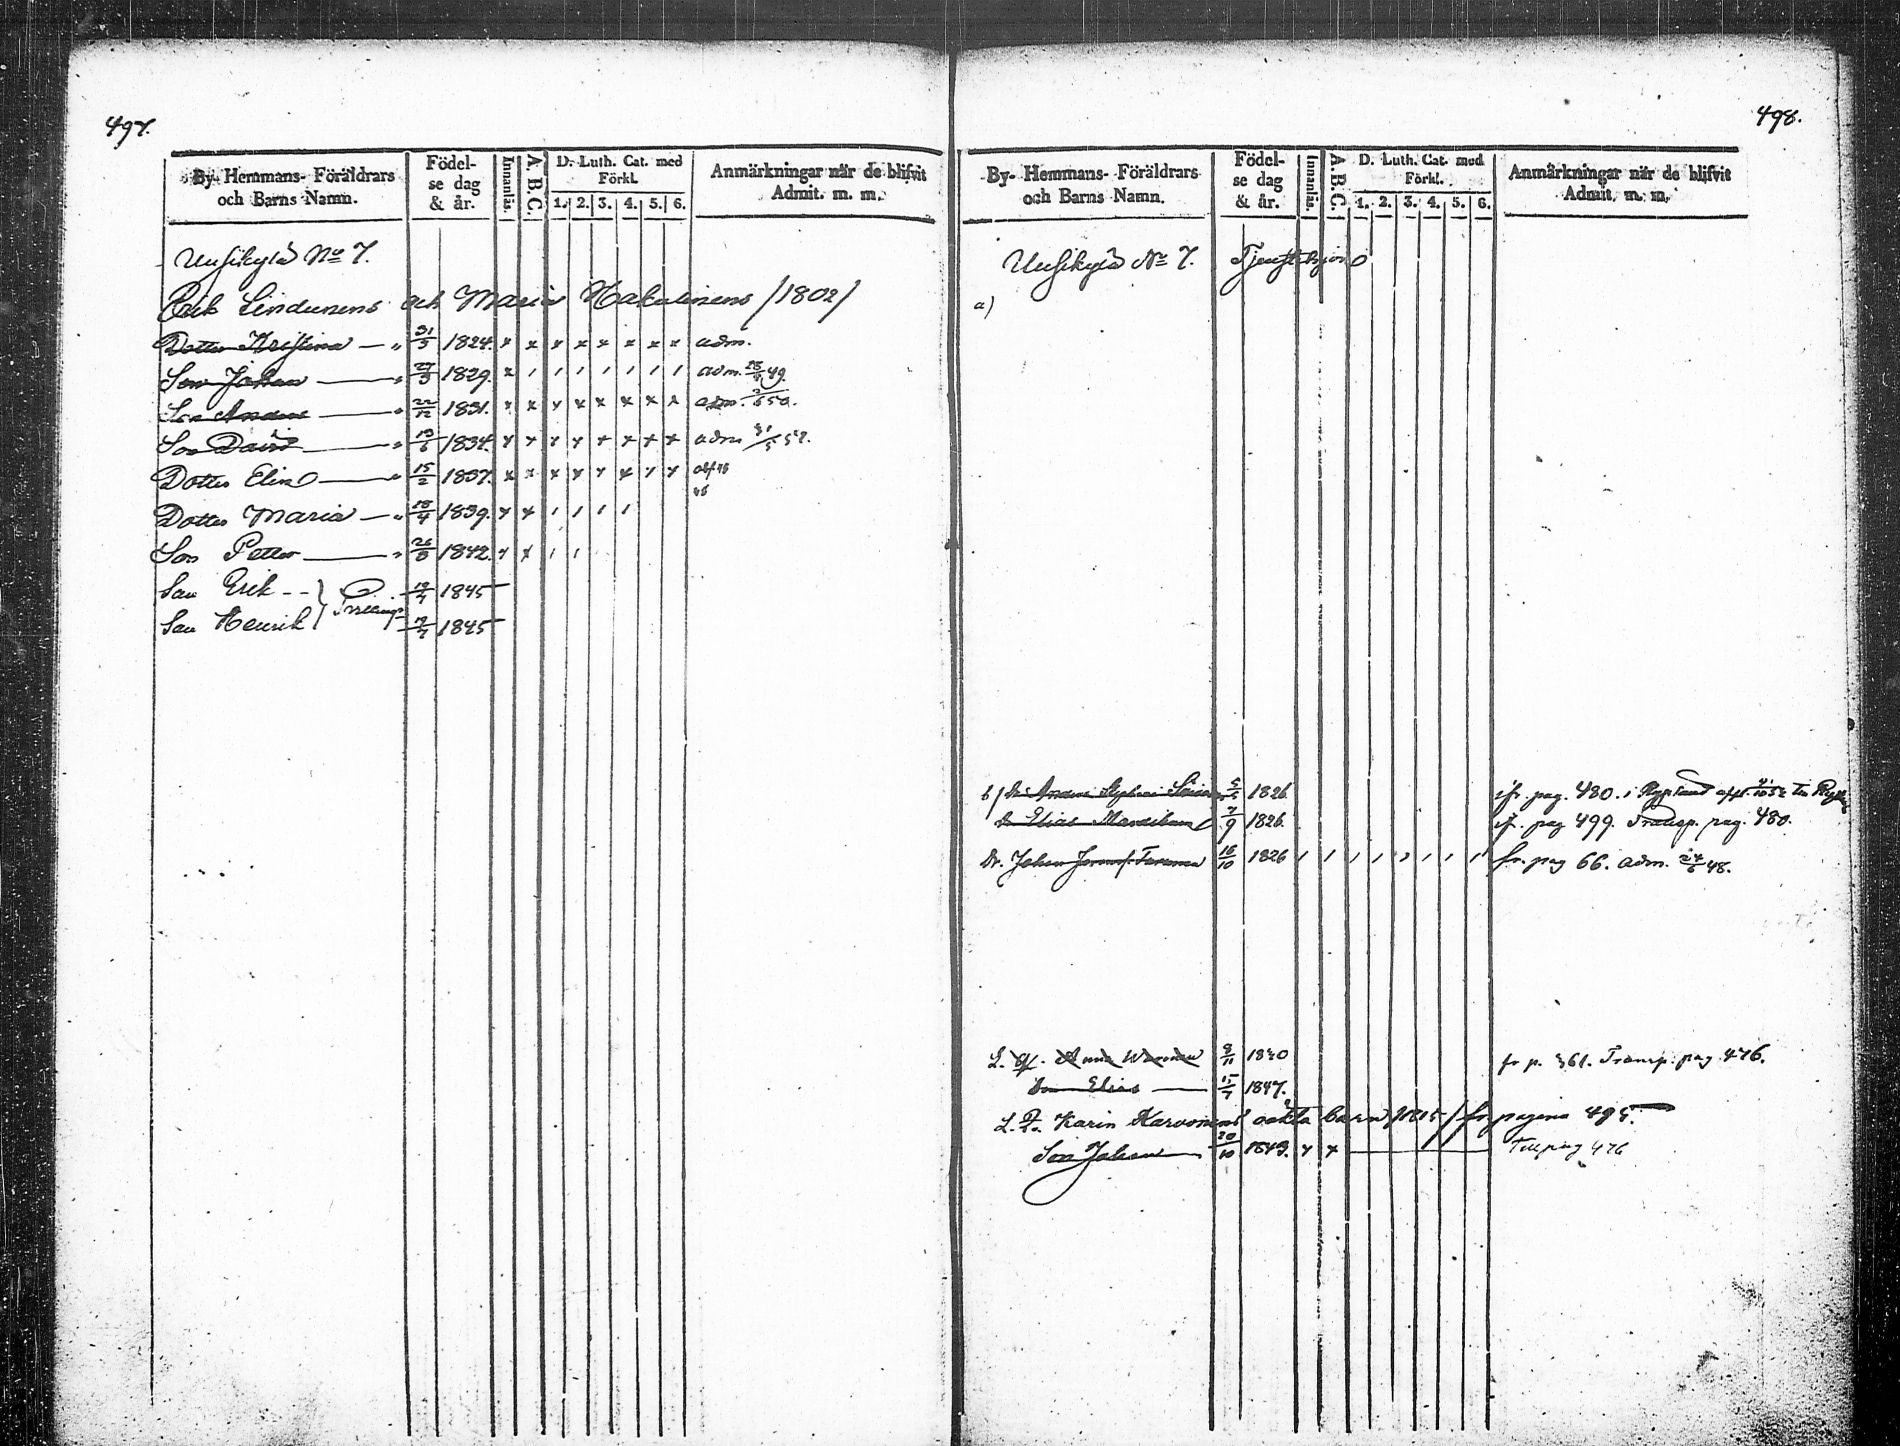 497.
By- Hemmans- Föräldrars och Barns Namn.
Födel-se dag & år.
Innanläs.
A. B. C.
D. Luth. Cat. med Förkl.
1. 2. 3. 4. 5. 6.
Anmärkningar när de blifvit Admit. m. m.
Uusikylä No 7.
Erik Sindunens och Maria Hakulinens /1802/
Dotter Kristina — " 31/3 1824. x x x x x x x x adm.
Son Johan — " 27/3 1829. x / / / / / / / adm. 49.
Son Anders — " 22/12 1831. x x x x x x x x adm. 50.
Son David — " 13/6 1834. x x x x x x x x adm 31/5 52.
Dotter Elin — " 15/2 1837. x x x x x x x x
Dotter Maria — " 18/4 1839. x x / / / /
Son Petter — " 26/8 1842. x x / /
Son Erik - - } 1845
Son Henrik } 7/7 1845
498.
By- Hemmans- Föräldrars och Barns Namn.
Födel-se dag & år.
Innanläs.
A. B. C.
D. Luth. Cat. med Förkl.
1. 2. 3. 4. 5. 6.
Anmärkningar när de blifvit Admit. m. m.
Uusikylä No 7. Tjenstehjon
a)
b) Dr. Anders 1826. fr. pag. 480. i
Dr. Elias 7/9 1826. fr. pag 499. Transp. pag. 480.
Dr. Johan 16/10 1826 / / / / / / / / fr. pag 66. adm. 24/6 48.
Anna 8/11 1840 fr p. 361. Transp. pag 476.
Son Elias — 15/7 1847.
Karin Karvonens oäkta barn /1815/ fr pagina 495.
Son Johan — 20/10 1843. x x — Till pag 476